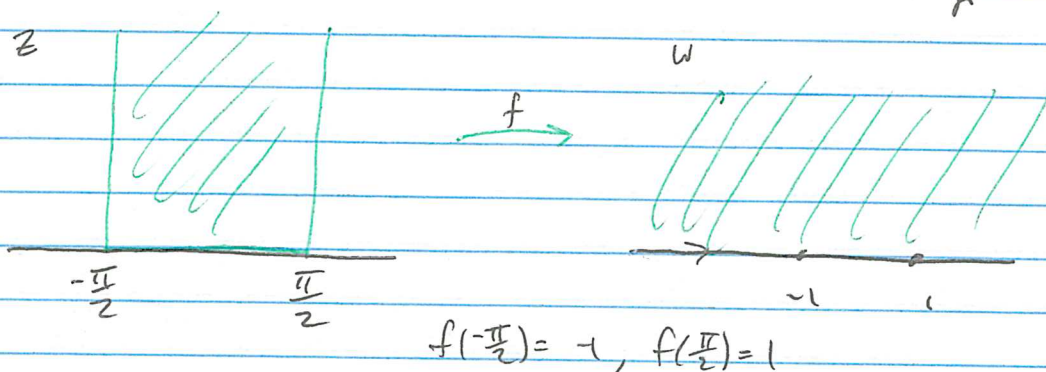 z
w
f
-π/2
π/2
-1
1
f(-π/2) = -1, f(π/2) = 1